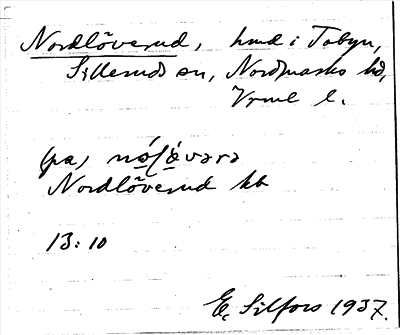 Nordlöverud, hmd i Tobyn,
Silleruds sn, Nordmarks hd,
Vrml l.
(pa)
Nordlöverud kb
13:10
E. Silfors 1937.